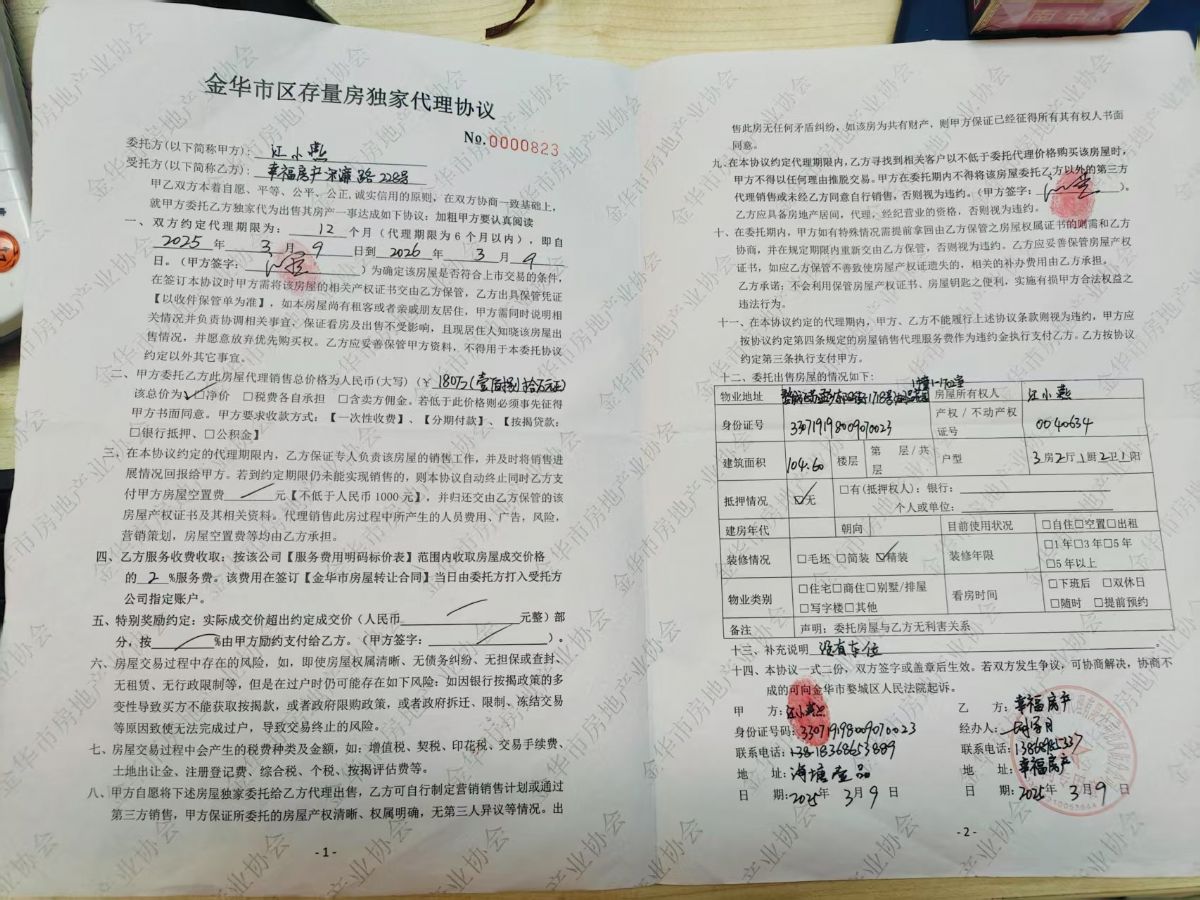 金华市区存量房独家代理协议
No.0000823
委托方(以下简称甲方): 江小燕
受托方(以下简称乙方): 幸福房产宾濂路228号
甲乙双方本着自愿、平等、公平、公正,诚实信用的原则,在双方协商一致基础上,
就甲方委托乙方独家代为出售其房产一事达成如下协议:加粗甲方要认真阅读
一、双方约定代理期限为: 12 个月(代理期限为6个月以内),即自
2025 年 3 月 9 日到 2026 年 3 月 9
日。(甲方签字: )为确定该房屋是否符合上市交易的条件,
在签订本协议时甲方需将该房屋的相关产权证书交由乙方保管,乙方出具保管凭证
【以收件保管单为准】,如本房屋尚有租客或者亲戚朋友居住,甲方需同时说明相
关情况并负责协调相关事宜、保证看房及出售不受影响,且现居住人知晓该房屋出
售情况,并愿意放弃优先购买权。乙方应妥善保管甲方资料,不得用于本委托协议
约定以外其它事宜。
二、甲方委托乙方此房屋代理销售总价格为人民币(大写)(¥ 180万(壹佰捌拾万元正)
该总价为☑净价 □税费各自承担 □含卖方佣金。若低于此价格则必须事先征得
甲方书面同意。甲方要求收款方式:【一次性收费】、【分期付款】、【按揭贷款:
□银行抵押、□公积金】
三、在本协议约定的代理期限内,乙方保证专人负责该房屋的销售工作,并及时将销售进
展情况回报给甲方。若到约定期限仍未能实现销售的,则本协议自动终止同时乙方支
付甲方房屋空置费 元【不低于人民币1000元】,并归还交由乙方保管的该
房屋产权证书及其相关资料。代理销售此房过程中所产生的人员费用、广告,风险,
营销策划,房屋空置费等均由乙方承担。
四、乙方服务收费收取:按该公司【服务费用明码标价表】范围内收取房屋成交价格
的 2 %服务费。该费用在签订【金华市房屋转让合同】当日由委托方打入受托方
公司指定账户。
五、特别奖励约定:实际成交价超出约定成交价(人民币 元整)部
分,按 %由甲方励约支付给乙方。(甲方签字: )。
六、房屋交易过程中存在的风险,如,即使房屋权属清晰、无债务纠纷、无担保或查封、
无租赁、无行政限制等,但是在过户时仍可能存在如下风险:如因银行按揭政策的多
变性导致买方不能获取按揭款,或者政府限购政策,或者政府拆迁、限制、冻结交易
等原因致使无法完成过户,导致交易终止的风险。
七、房屋交易过程中会产生的税费种类及金额,如:增值税、契税、印花税、交易手续费、
土地出让金、注册登记费、综合税、个税、按揭评估费等。
八、甲方自愿将下述房屋独家委托给乙方代理出售,乙方可自行制定营销销售计划或通过
第三方销售,甲方保证所委托的房屋产权清晰、权属明确,无第三人异议等情况。出
- 1 -
售此房无任何矛盾纠纷、如该房为共有财产,则甲方保证已经征得所有其有权人书面
同意。
九、在本协议约定代理期限内,乙方寻找到相关客户以不低于委托代理价格购买该房屋时,
甲方不得以任何理由推脱交易。甲方在委托期内不得将该房屋委托乙方以外的第三方
代理销售或未经乙方同意自行销售,否则视为违约。(甲方签字: )。
乙方应具备房地产居间,代理,经纪营业的资格,否则视为违约。
十、在委托期内,甲方如有特殊情况需提前拿回由乙方保管之房屋权属证书的则需和乙方
协商,并在规定期限内重新交由乙方保管,否则视为违约。乙方应妥善保管房屋产权
证书,如应乙方保管不善致使房屋产权证遗失的,相关的补办费用由乙方承担。
乙方承诺:不会利用保管房屋产权证书、房屋钥匙之便利,实施有损甲方合法权益之
违法行为。
十一、在本协议约定的代理期内,甲方、乙方不能履行上述协议条款则视为违约,甲方应
按协议约定第四条规定的房屋销售代理服务费作为违约金执行支付乙方。乙方按协议
约定第三条执行支付甲方。
十二、委托出售房屋的情况如下:
物业地址 1幢1-1702室 房屋所有权人 江小燕
身份证号 330719198009070023 产权/不动产权证号 0040634
建筑面积 104.60 楼层 第 层/共 层 户型 3房2厅1厨2卫1阳
抵押情况 ☑无 □有(抵押权人):银行:
个人或单位:
建房年代 朝向 目前使用状况 □自住□空置□出租
装修情况 □毛坯 □简装 ☑精装 装修年限 □1年□3年□5年
□5年以上
物业类别 □住宅□商住□别墅/排屋 看房时间 □下班后 □双休日
□写字楼□其他 □随时 □提前预约
备注 声明:委托房屋与乙方无利害关系
十三、补充说明 没有车位
十四、本协议一式二份,双方签字或盖章后生效。若双方发生争议,可协商解决,协商不
成的可向金华市婺城区人民法院起诉。
甲 方: 江小燕 乙 方: 幸福房产
身份证号码: 330719198009070023 经办人:
联系电话: 13818368653889 联系电话:
地 址: 地 址: 幸福房产
日 期: 2025年 3月 9 日 日 期: 2025年 3月 9 日
- 2 -